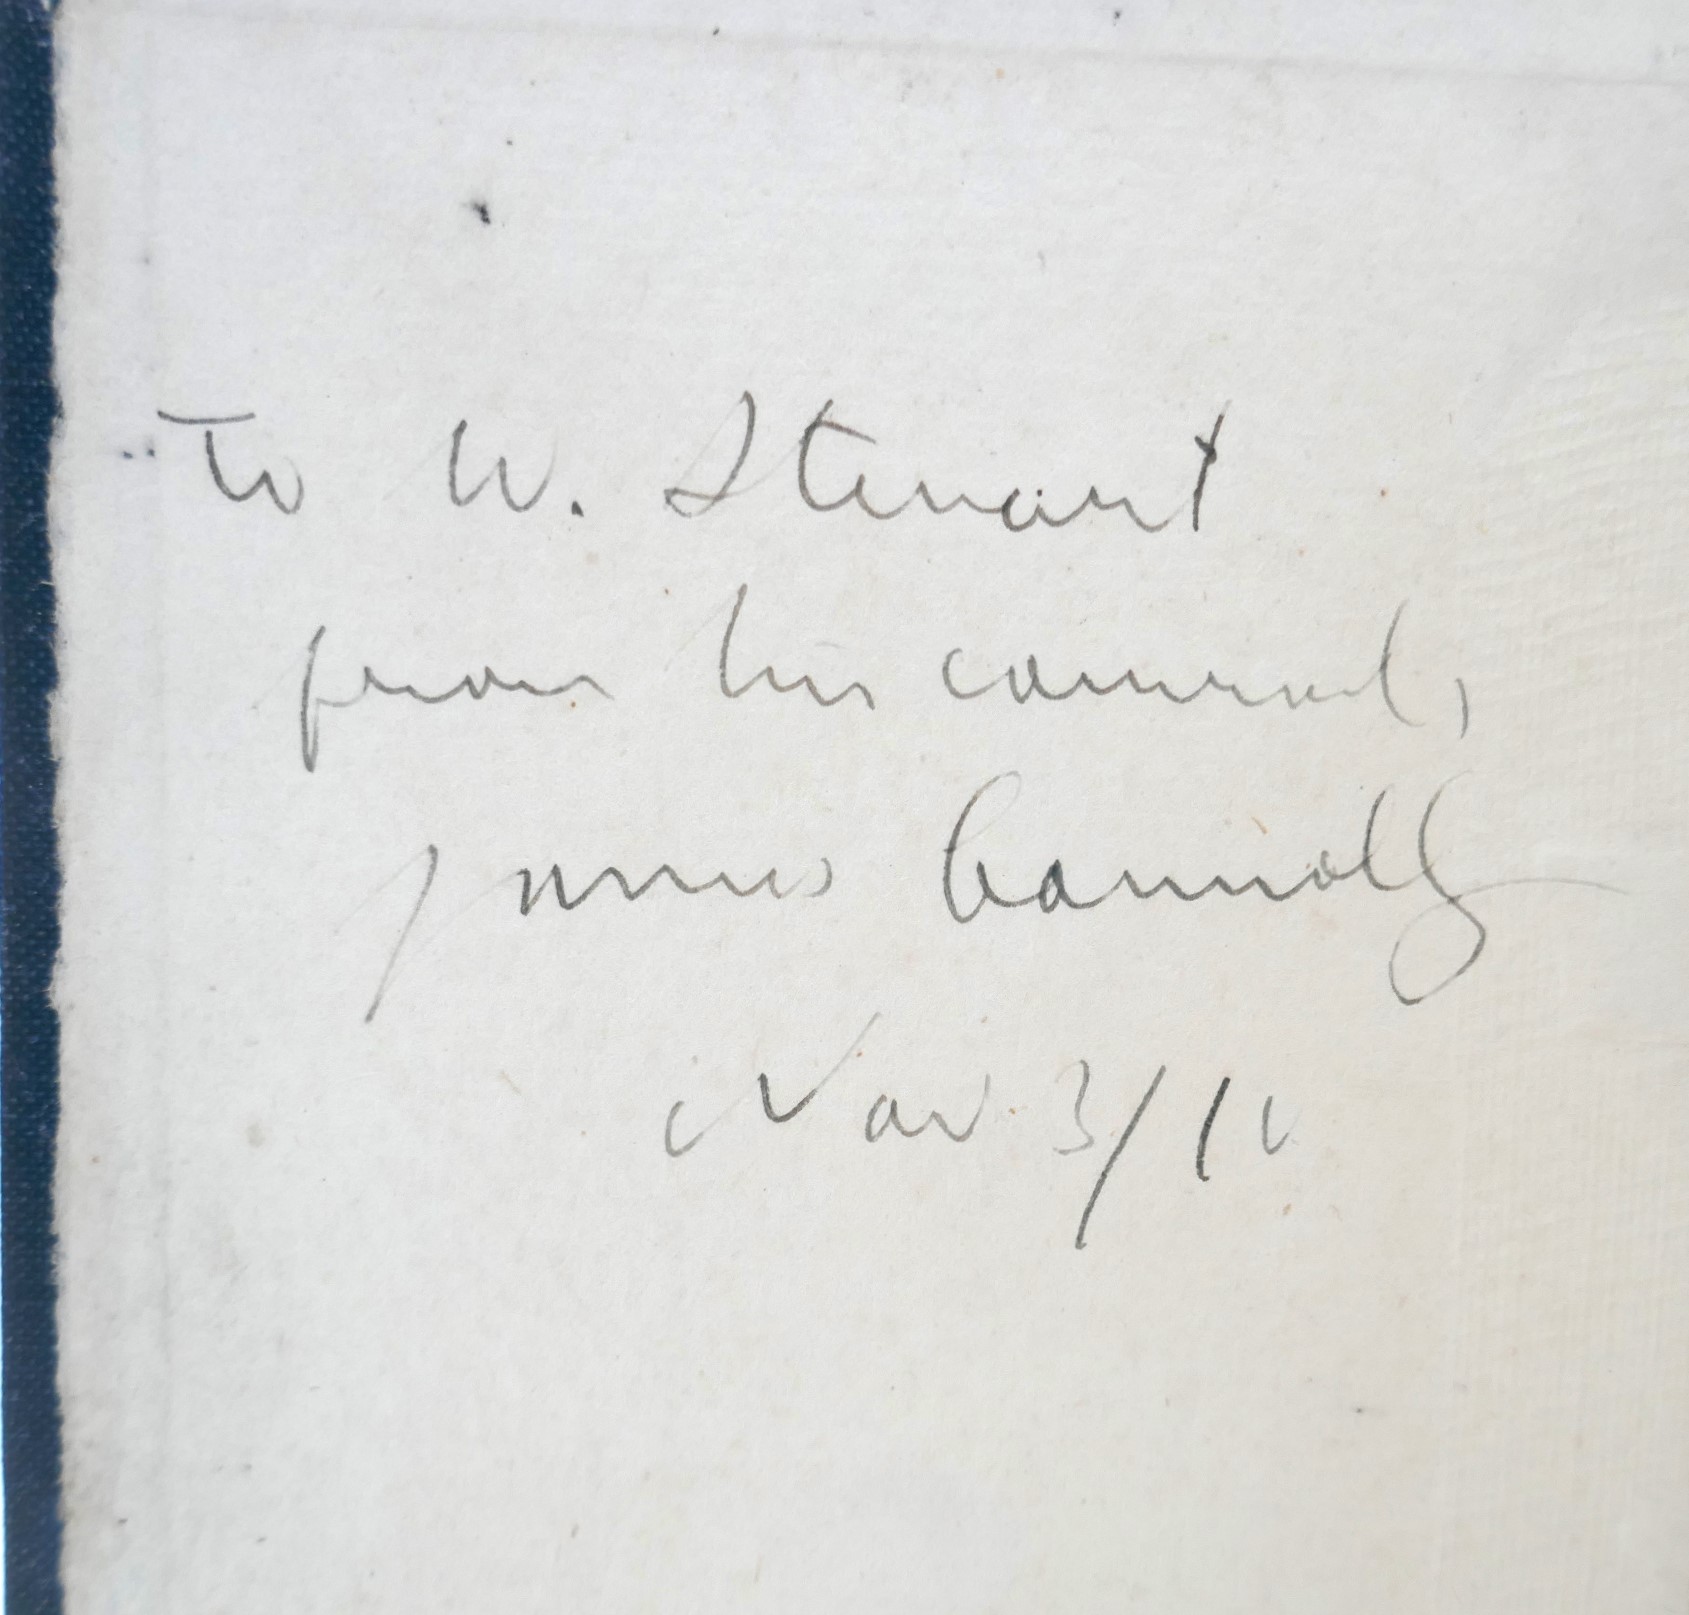 To W. Stewart
from his comrade,
James Connolly
Nov 3/10